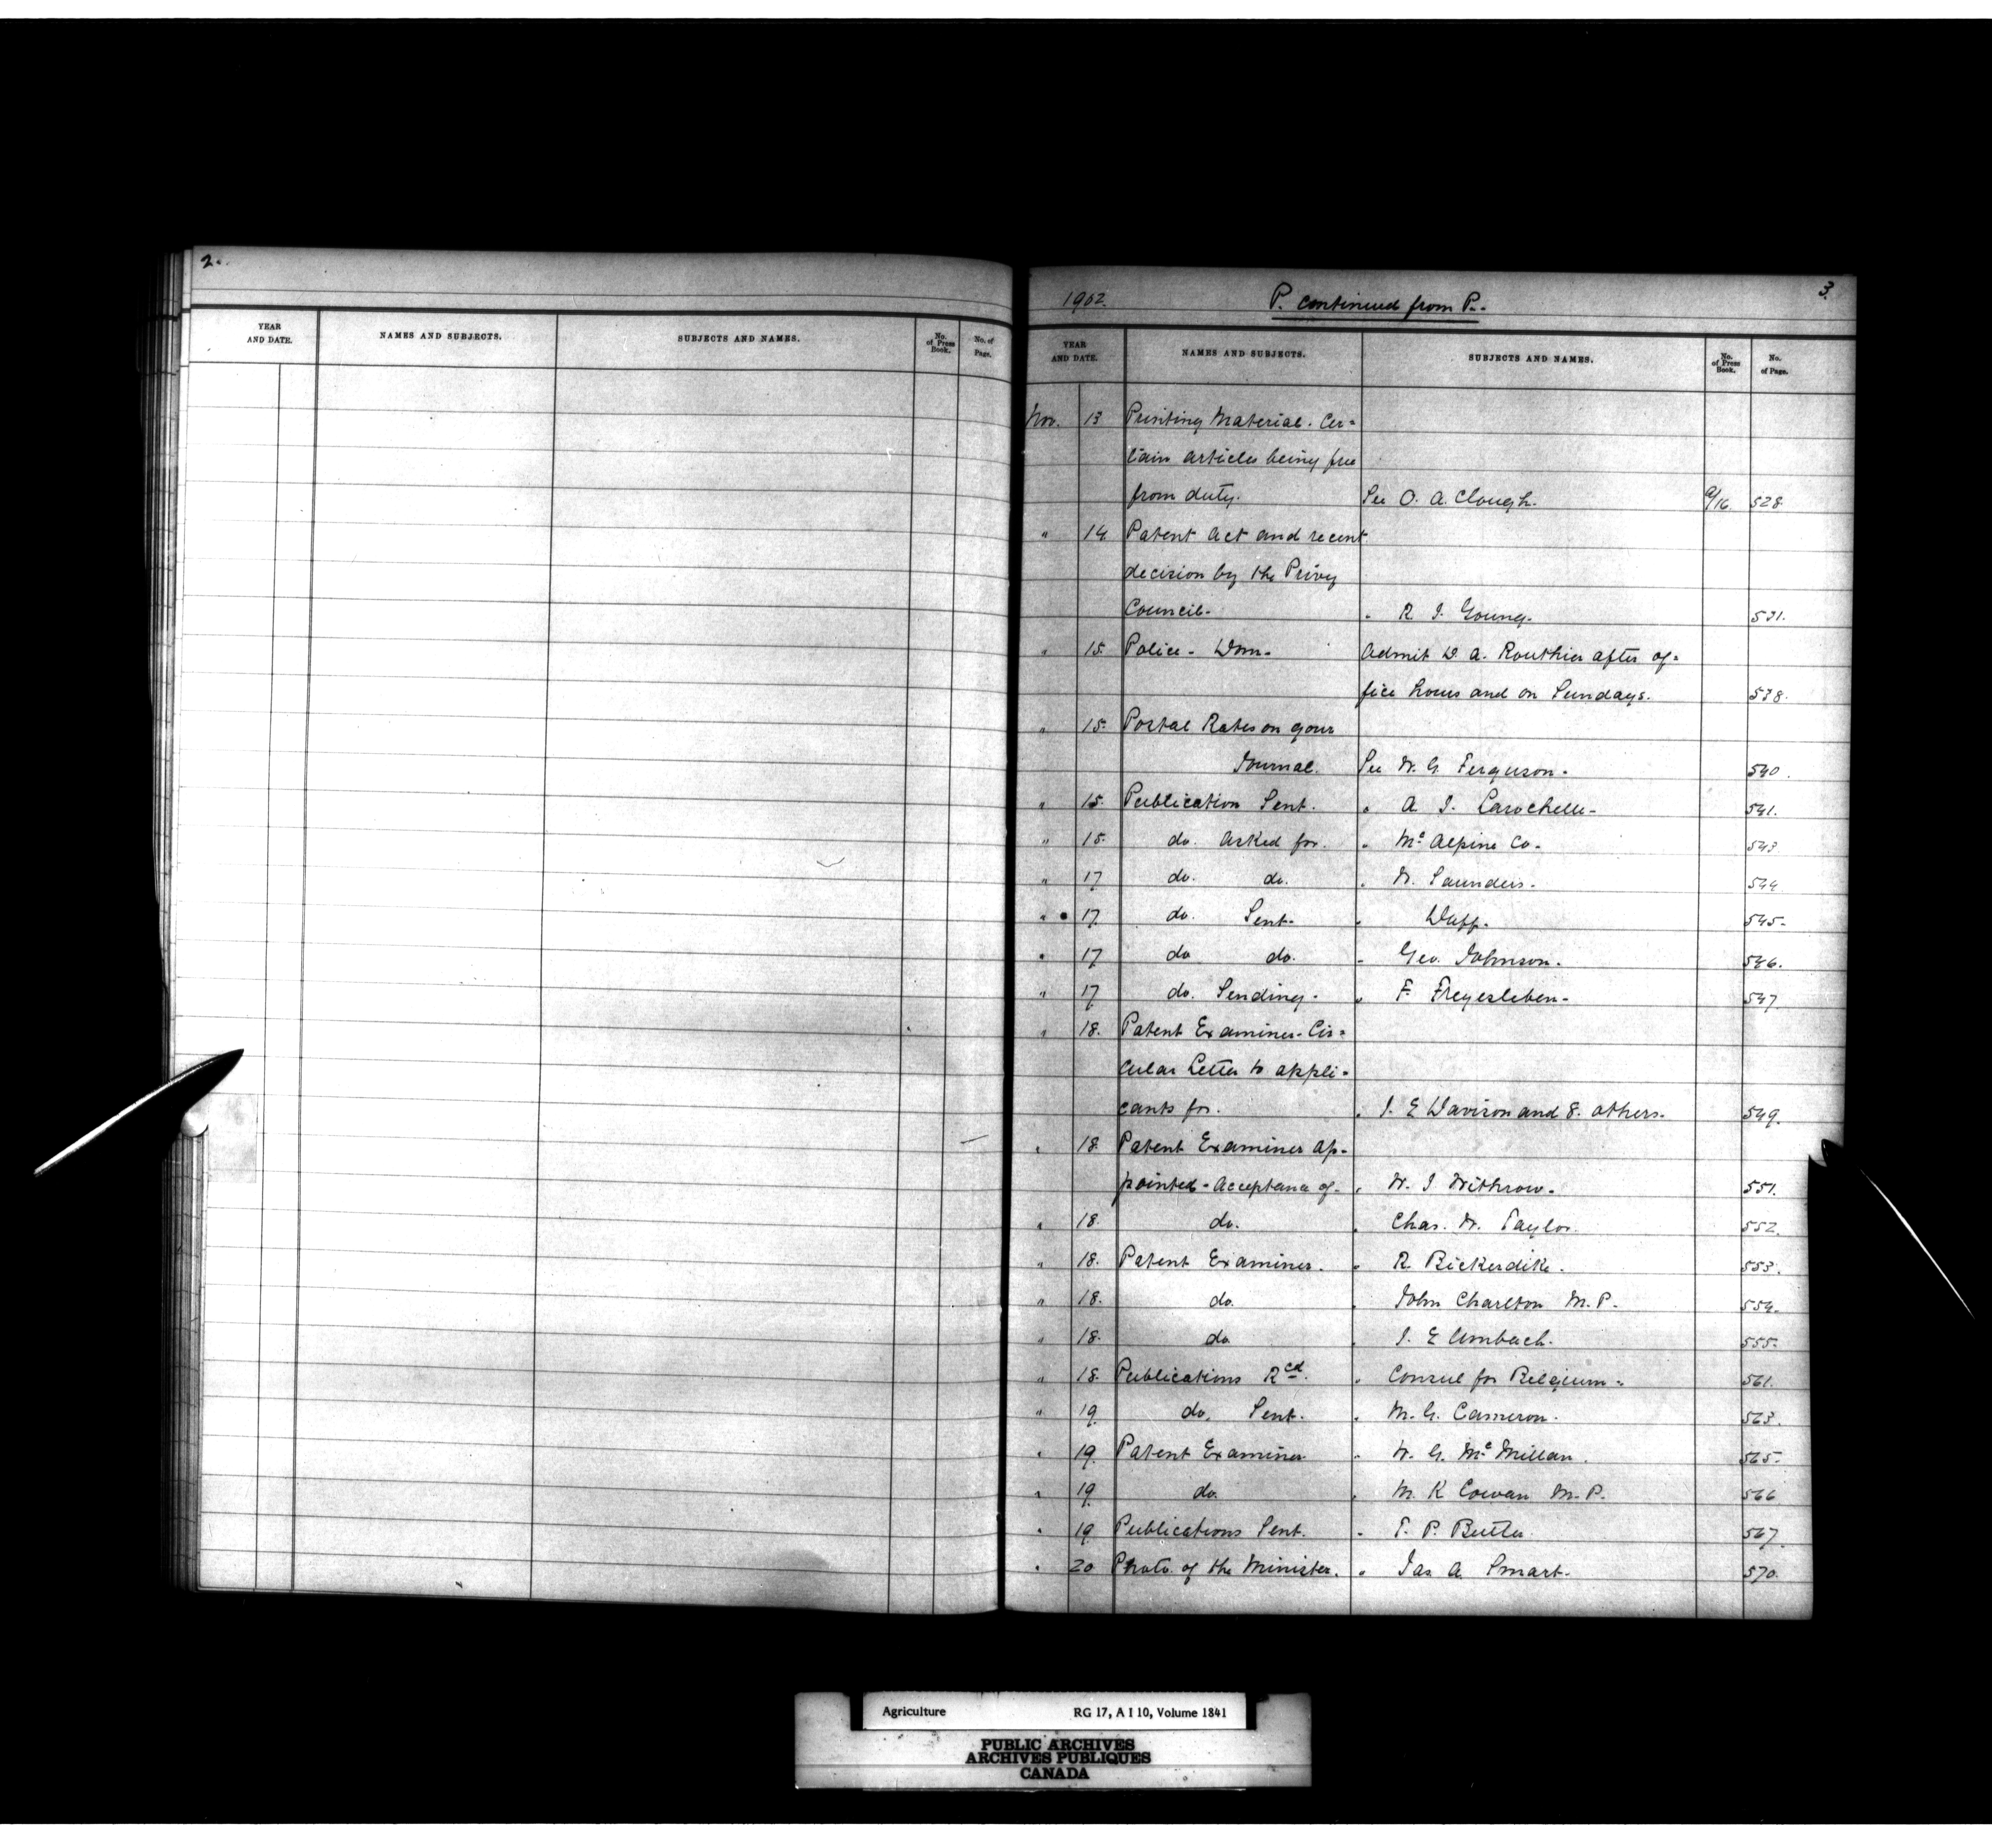 2.
YEAR AND DATE. NAMES AND SUBJECTS. SUBJECTS AND NAMES. No. of Press Book. No. of Page.
1902. P. continued from P. 3.
YEAR AND DATE. NAMES AND SUBJECTS. SUBJECTS AND NAMES. No. of Press Book. No. of Page.
Nov. 13 Printing Material. Cer=
tain articles being free
from duty. See O. A. Clough. 528.
" 14 Patent Act and recent
decision by the Privy
Council. " R. J. Young. 531.
" 15. Police - Dom. Admit W. A. Routhier after of=
fice hours and on Sundays. 538.
" 15. Postal Rates on your
Journal. See W. G. Ferguson. 540.
" 15. Publication Sent. " A. J. Larochelle. 541.
" 15. do. Asked for. " Mc Alpine Co. 543
" 17 do. do. " W. Saunders. 544
" 17. do. Sent. " 545.
" 17 do do. " Geo. Johnson. 546.
" 17 do. Sending. " F. Freyesleben. 547
" 18. Patent Examiner - Cir=
cular Letter to appli=
cants for. " J. E Davison and 8. others. 549.
" 18. Patent Examiner ap=
pointed - Acceptance of. " W. J Withrow. 551.
" 18. do. " Chas. W. Taylor. 552.
" 18. Patent Examiner. " R. Bickerdike. 553.
" 18. do. " John Charlton M.P. 554.
" 18. do " J. E Umbach. 555.
" 18. Publications Rcd. " Consul for Belgium. 561.
" 19. do. Sent. " M. G. Cameron. 563.
" 19. Patent Examiner. " W. G. Mc Millan. 565.
" 19. do. " M. K Cowan M.P. 566
" 19. Publications Sent. " T. P. Butler. 567.
" 20 Photo. of the Minister. " Jas. A. Smart. 570.
Agriculture RG 17, A I 10, Volume 1841
PUBLIC ARCHIVES
ARCHIVES PUBLIQUES
CANADA